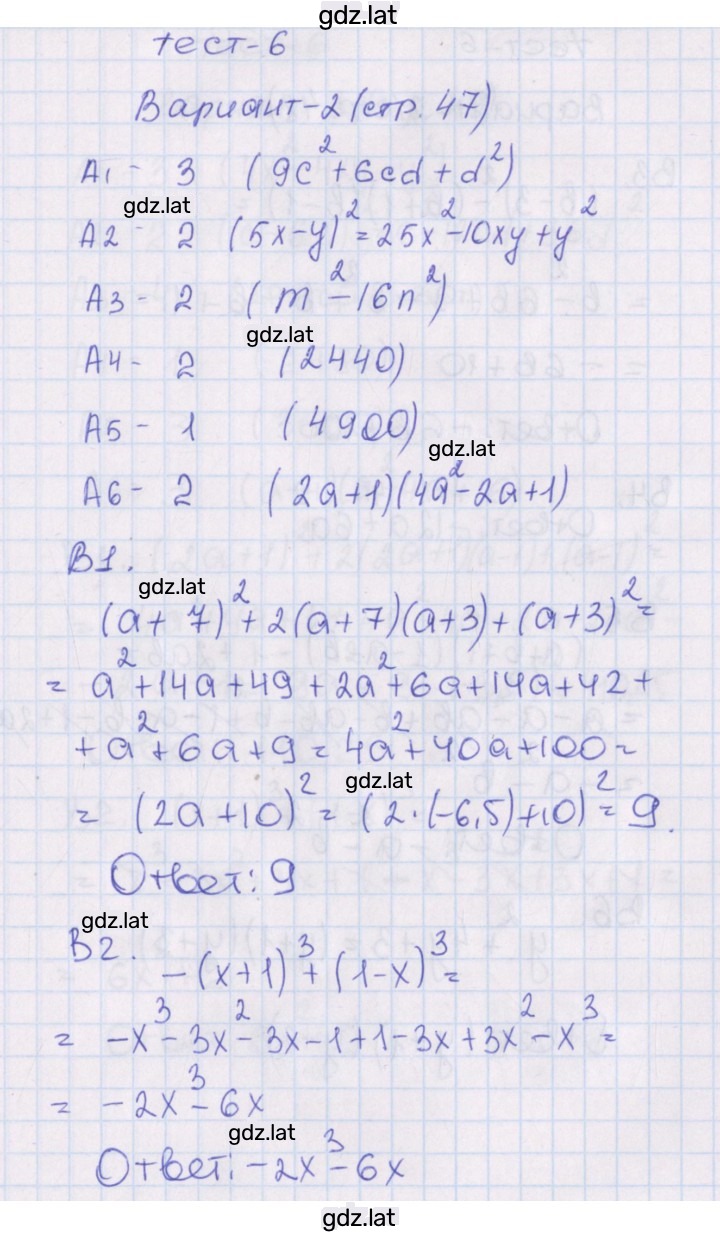 gdz.lat
тест-6
Вариант-2 (стр. 47)
A1 - 3 (9c²+6cd+d²)
gdz.lat
A2 - 2 (5x-y)²=25x²-10xy+y²
A3 - 2 (m²-16n²)
gdz.lat
A4 - 2 (2440)
A5 - 1 (4900)
gdz.lat
A6 - 2 (2a+1)(4a²-2a+1)
B1.
gdz.lat
(a+7)²+2(a+7)(a+3)+(a+3)²=
= a²+14a+49+2a²+6a+14a+42+
+a²+6a+9=4a²+40a+100=
gdz.lat
= (2a+10)²=(2·(-6,5)+10)²=9.
Ответ: 9
gdz.lat
B2. -(x+1)³+(1-x)³=
= -x³-3x²-3x-1+1-3x+3x²-x³=
= -2x³-6x
gdz.lat
Ответ: -2x³-6x
gdz.lat